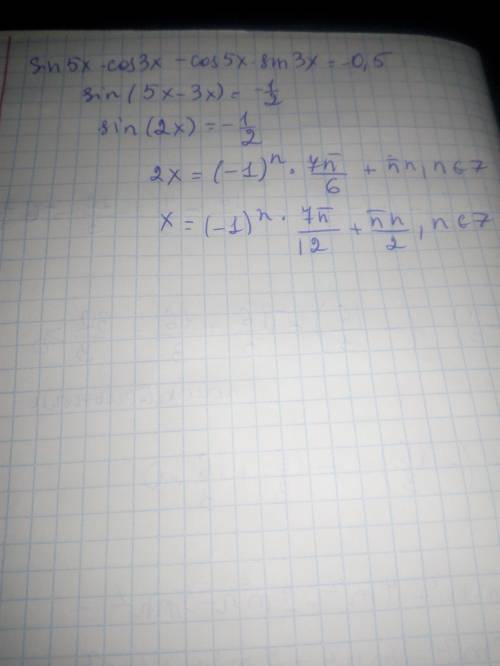 sin5x·cos3x - cos5x·sin3x = -0,5
sin(5x-3x) = -1/2
sin(2x) = -1/2
2x = (-1)^n · 7π/6 + πn, n∈Z
x = (-1)^n · 7π/12 + πn/2, n∈Z